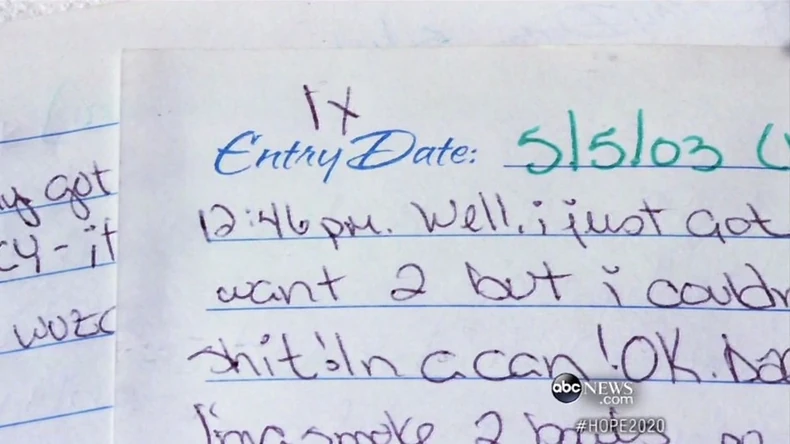 1x
Entry Date: 5/5/03 (
y got
12:46 pm. Well, i just Got
cy - it
want 2 but i couldn
wuz
shit! In a can! OK.
abc NEWS
.com
smoke 2
#HOPE2020